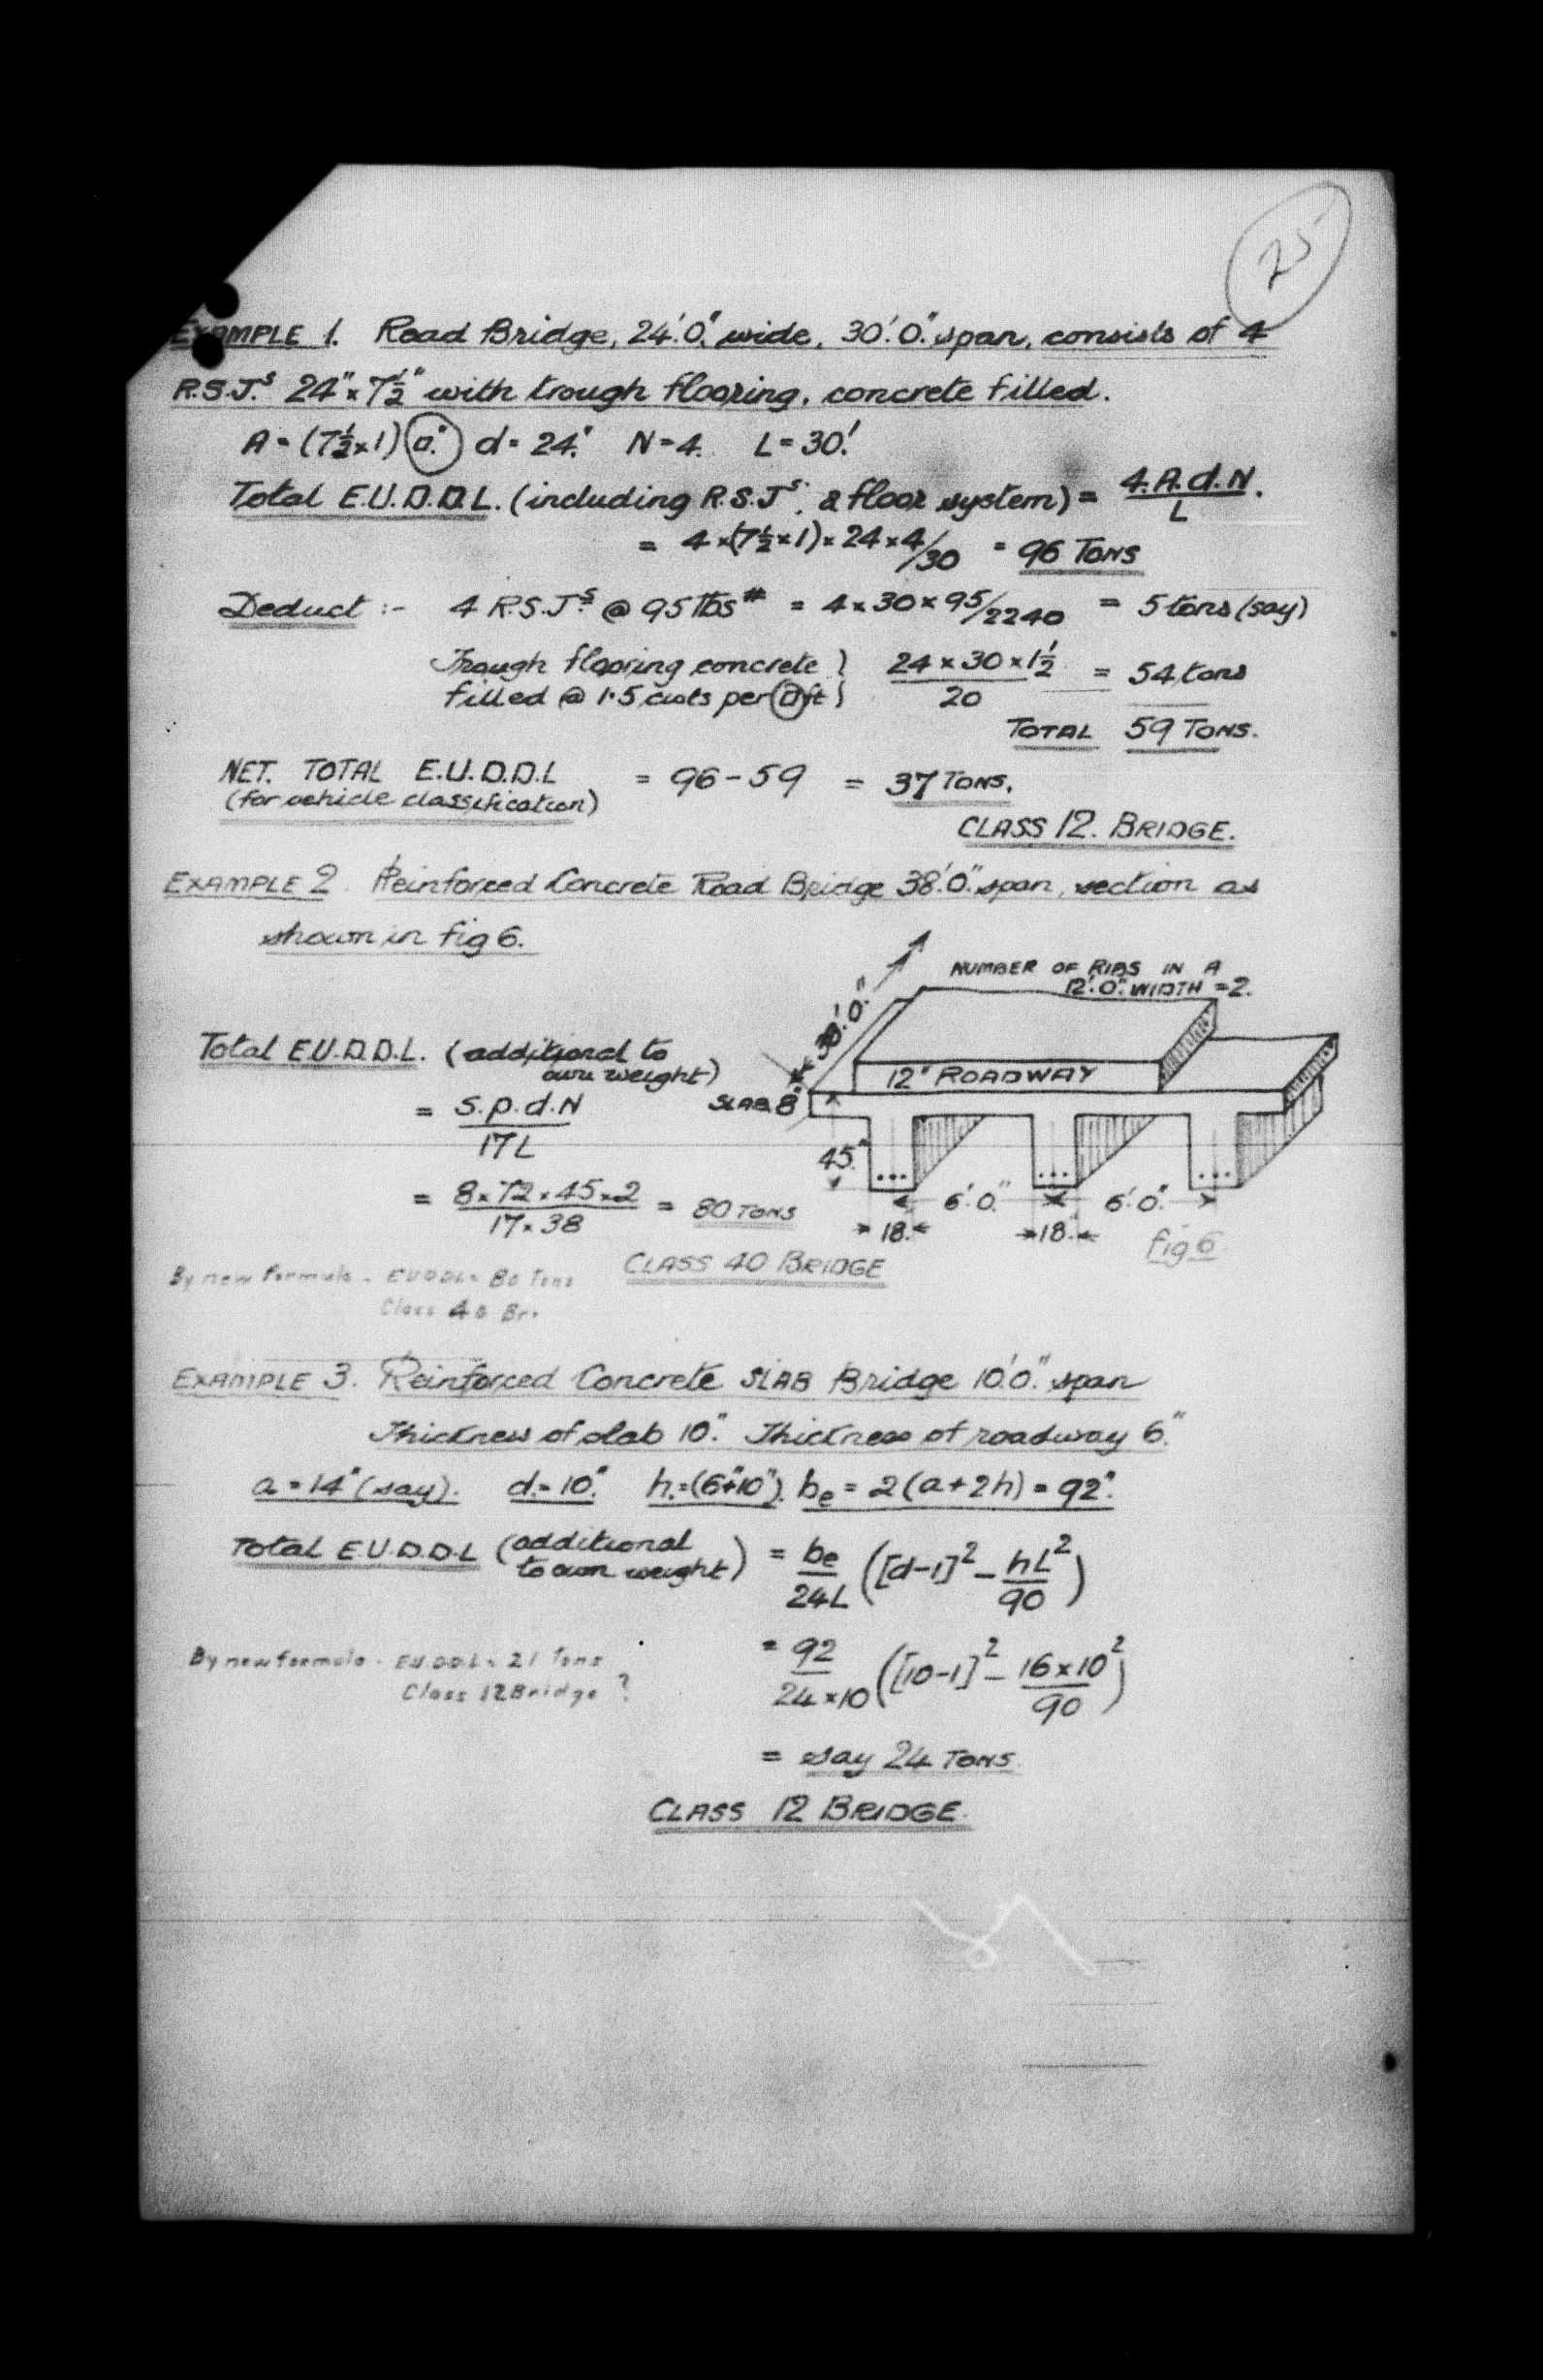 25
EXAMPLE 1. Road Bridge, 24'.0" wide, 30'.0" span, consists of 4
R.S.J.s 24" x 7½" with trough flooring, concrete filled.
A = (7½x1)□" d = 24". N=4. L=30'.
Total E.U.D.D.L. (including R.S.Js. & floor system) = 4.A.d.N. / L
= 4x(7½x1)x24x4/30 = 96 TONS
Deduct :- 4 R.S.Js @ 95 lbs# = 4x30x95/2240 = 5 tons (say)
Trough flooring concrete } 24x30x1½ / 20 = 54 tons
filled @ 1.5 cwts per □ft }
TOTAL 59 TONS.
NET. TOTAL E.U.D.D.L = 96-59 = 37 TONS.
(for vehicle classification)
CLASS 12. BRIDGE.
EXAMPLE 2. Reinforced Concrete Road Bridge 38'.0". span, section as
shown in fig 6.
NUMBER OF RIBS IN A
12'.0". WIDTH =2.
38'.0"
Total E.U.D.D.L. (additional to
own weight)
12" ROADWAY
SLAB 8"
= S.p.d.N / 17L
45"
= 8x72x45x2 / 17x38 = 80 TONS
6'.0". 6'.0".
18" 18"
fig 6.
CLASS 40 BRIDGE
By new Formula - EUDDL= 80 Tons
Class 40 Br.
EXAMPLE 3. Reinforced Concrete SLAB Bridge 10'.0". span
Thickness of slab 10". Thickness of roadway 6"
a = 14" (say). d = 10". h = (6"+10"). be = 2(a+2h) = 92".
Total E.U.D.D.L (additional to own weight) = be / 24L ([d-1]² - hL² / 90)
= 92 / 24x10 ([10-1]² - 16x10² / 90)
By new formula - E.U.D.D.L = 21 Tons
Class 12 Bridge ?
= say 24 TONS.
CLASS 12 BRIDGE.